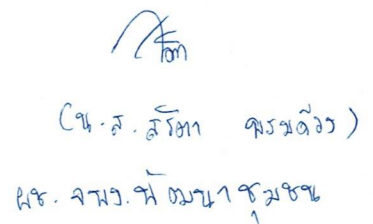 (น.ส. สริตา พรมดีวง)
ผช. จพง. พัฒนาชุมชน